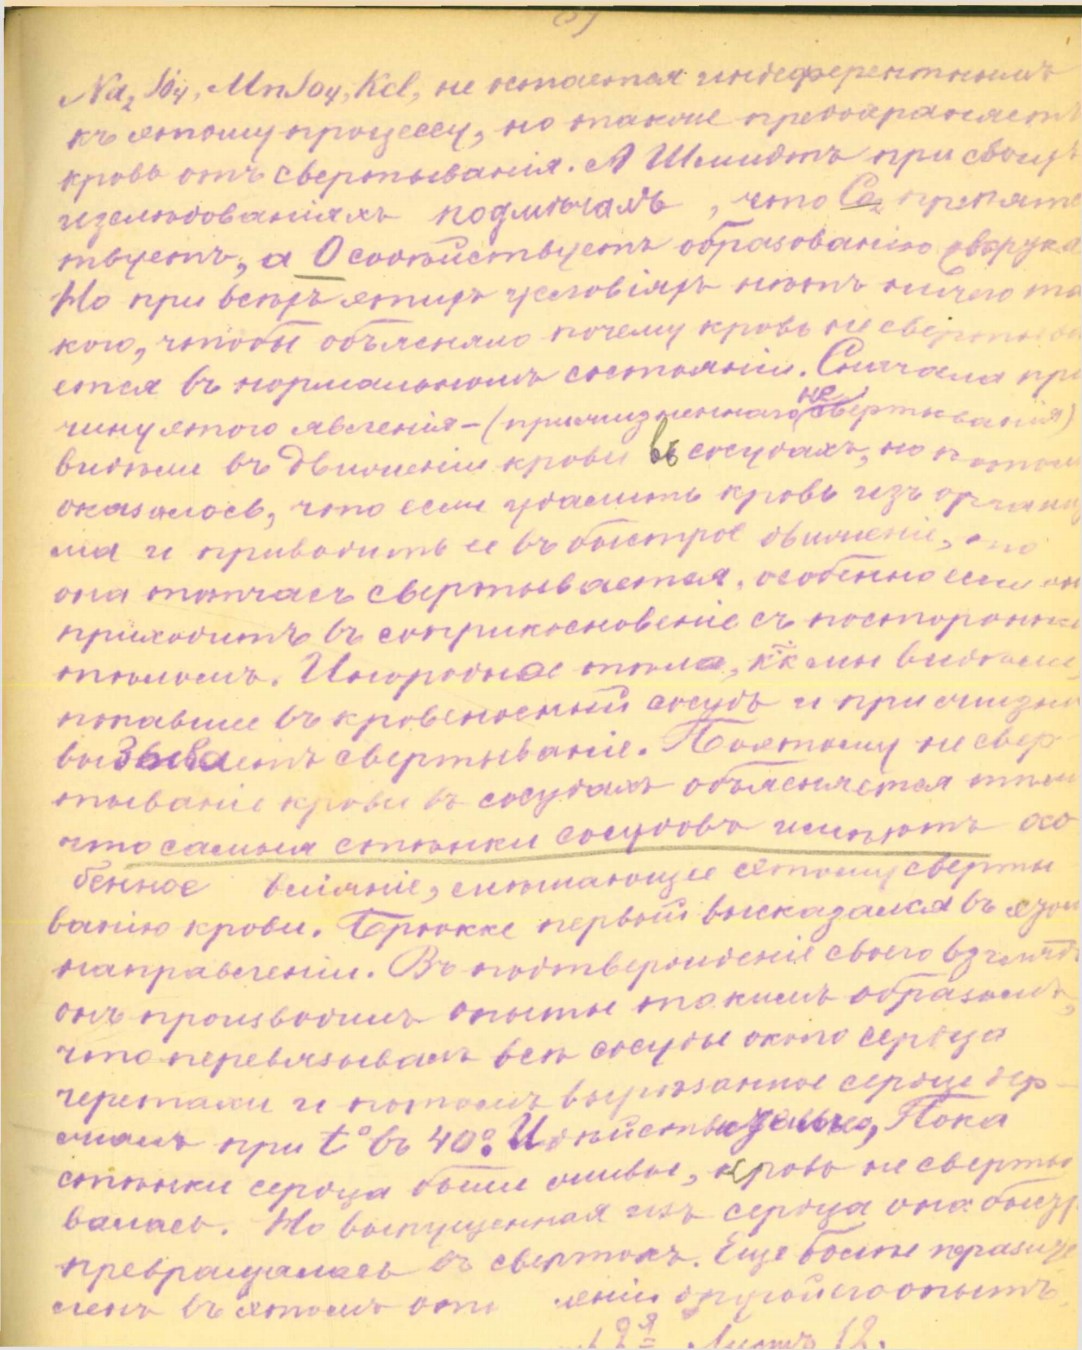 Na₂So₄, MnSo₄, Kcl, не остается индеферентнымъ
къ этому процессу, но также предохраняетъ
кровь отъ свертыванія. А Шмидтъ при своихъ
изслѣдованіяхъ подмѣчалъ, что Co₂ препятс
твуетъ, а O содѣйствуетъ образованію
Но при всѣхъ этихъ условіяхъ нѣтъ ничего та
кого, чтобы объясняло почему кровь не свертыва
ется въ нормальномъ состояніи. Сначала при
чину этого явленія – (прижизненнаго не свертыванія)
видѣли въ движеніи крови въ сосудахъ, но потомъ
оказалось, что если удалить кровь изъ организ
ма и приводить ее въ быстрое движеніе, то
она тотчасъ свертывается, особенно если он
приходитъ въ соприкосновеніе съ посторонни
тѣломъ. Инородное тѣла, кк мы видѣли,
попавшее въ кровеносный сосудъ и при жизни
вызываетъ свертываніе. Поэтому не свер-
тываніе крови въ сосудахъ объясняется тѣмъ
что самыя стѣнки сосудовъ имѣютъ осо
бенное вліяніе, мѣшающее этому сверты
ванію крови. Брюкке первый высказался въ этом
направленіи. Въ подтвержденіе своего взгляда
онъ производилъ опыты такимъ образомъ,
что перевязывалъ всѣ сосуды около сердца
черепахи и потомъ вырѣзанное сердце дер-
жалъ при t° въ 40°. И Пока
стѣнки сердца были живые, кровь не сверты
валась. Но выпущенная изъ сердца она быстр
превращалась въ свертокъ. Еще болѣе порази
ленъ въ этомъ отно шеніи другой его опытъ.
12я Листъ 12.